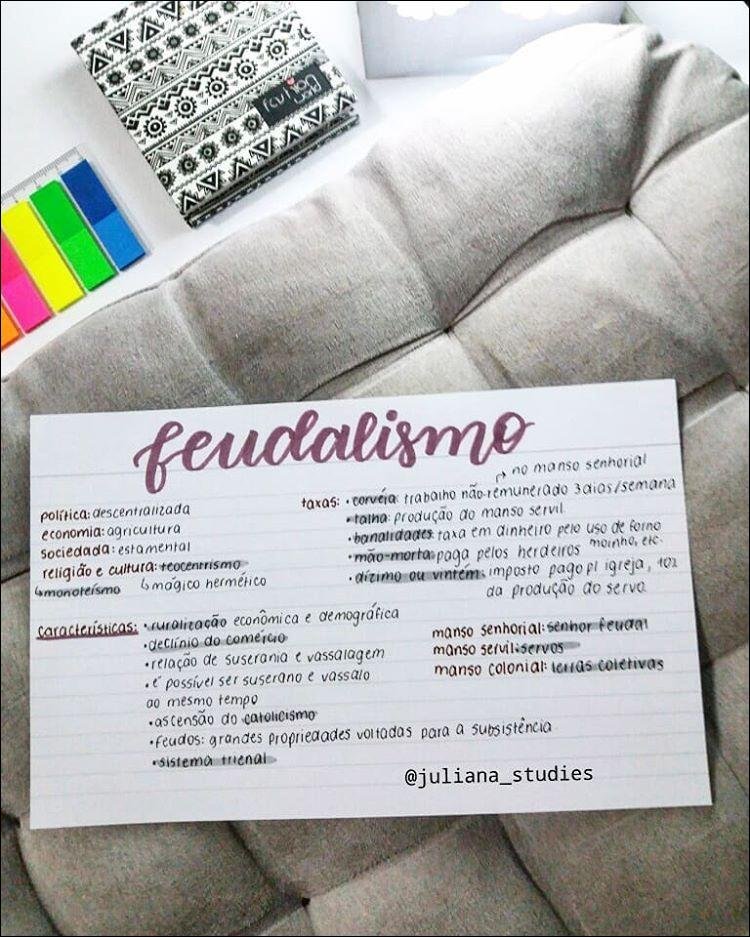 fashion
world
feudalismo
política: descentralizada
economia: agricultura
sociedada: estamental
religião e cultura: teocentrismo
↳monoteísmo ↳mágico hermético
taxas: • corvéia: trabalho não-remunerado 3dias/semana
↱ no manso senhorial
• talha: produção do manso servil
• banalidades: taxa em dinheiro pelo uso de forno
moinho, etc.
• mão-morta: paga pelos herdeiros
• dízimo ou vintém: imposto pago p/ igreja, 10%
da produção do servo
características: • ruralização econômica e demográfica
• declínio do comércio
• relação de suserania e vassalagem
• é possível ser suserano e vassalo
ao mesmo tempo
• ascensão do catolicismo
• feudos: grandes propriedades voltadas para a subsistência
• sistema trienal
manso senhorial: senhor feudal
manso servil: servos
manso colonial: terras coletivas
@juliana_studies